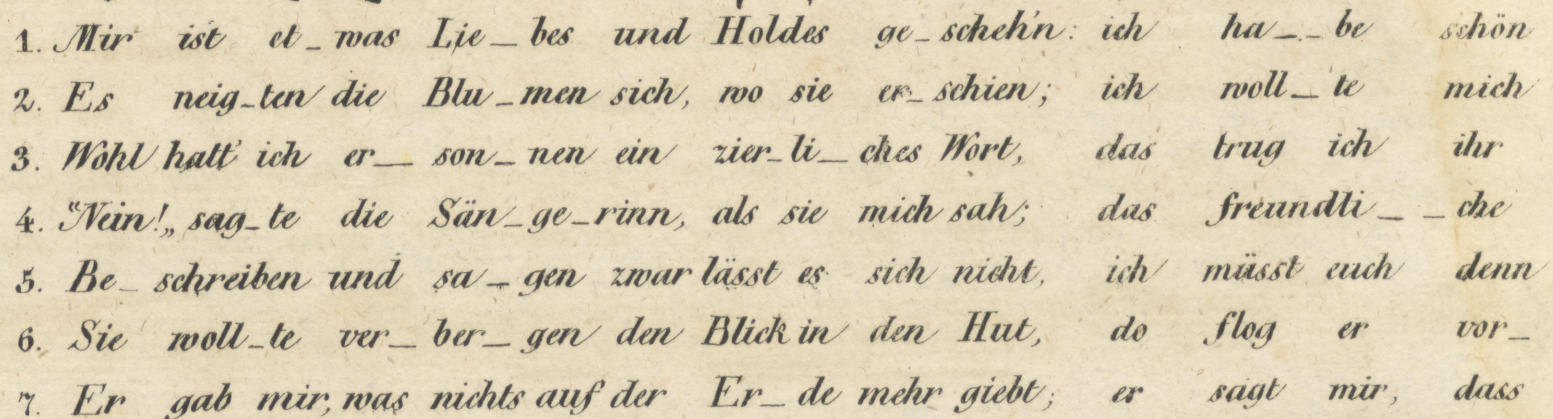 1. Mir ist et_was Lie_bes und Holdes ge_scheh'n: ich ha__be schön
2. Es neig_ten die Blu_men sich, wo sie er_schien; ich woll_te mich
3. Wohl hatt' ich er_son_nen ein zier_li_ches Wort, das trug ich ihr
4. "Nein!„ sag_te die Sän_ge_rinn, als sie mich sah; das freundli__che
5. Be_schreiben und sa_gen zwar lässt es sich nicht, ich müsst euch denn
6. Sie woll_te ver_ber_gen den Blick in den Hut, do flog er vor_
7. Er gab mir, was nichts auf der Er_de mehr giebt; er sagt mir, dass